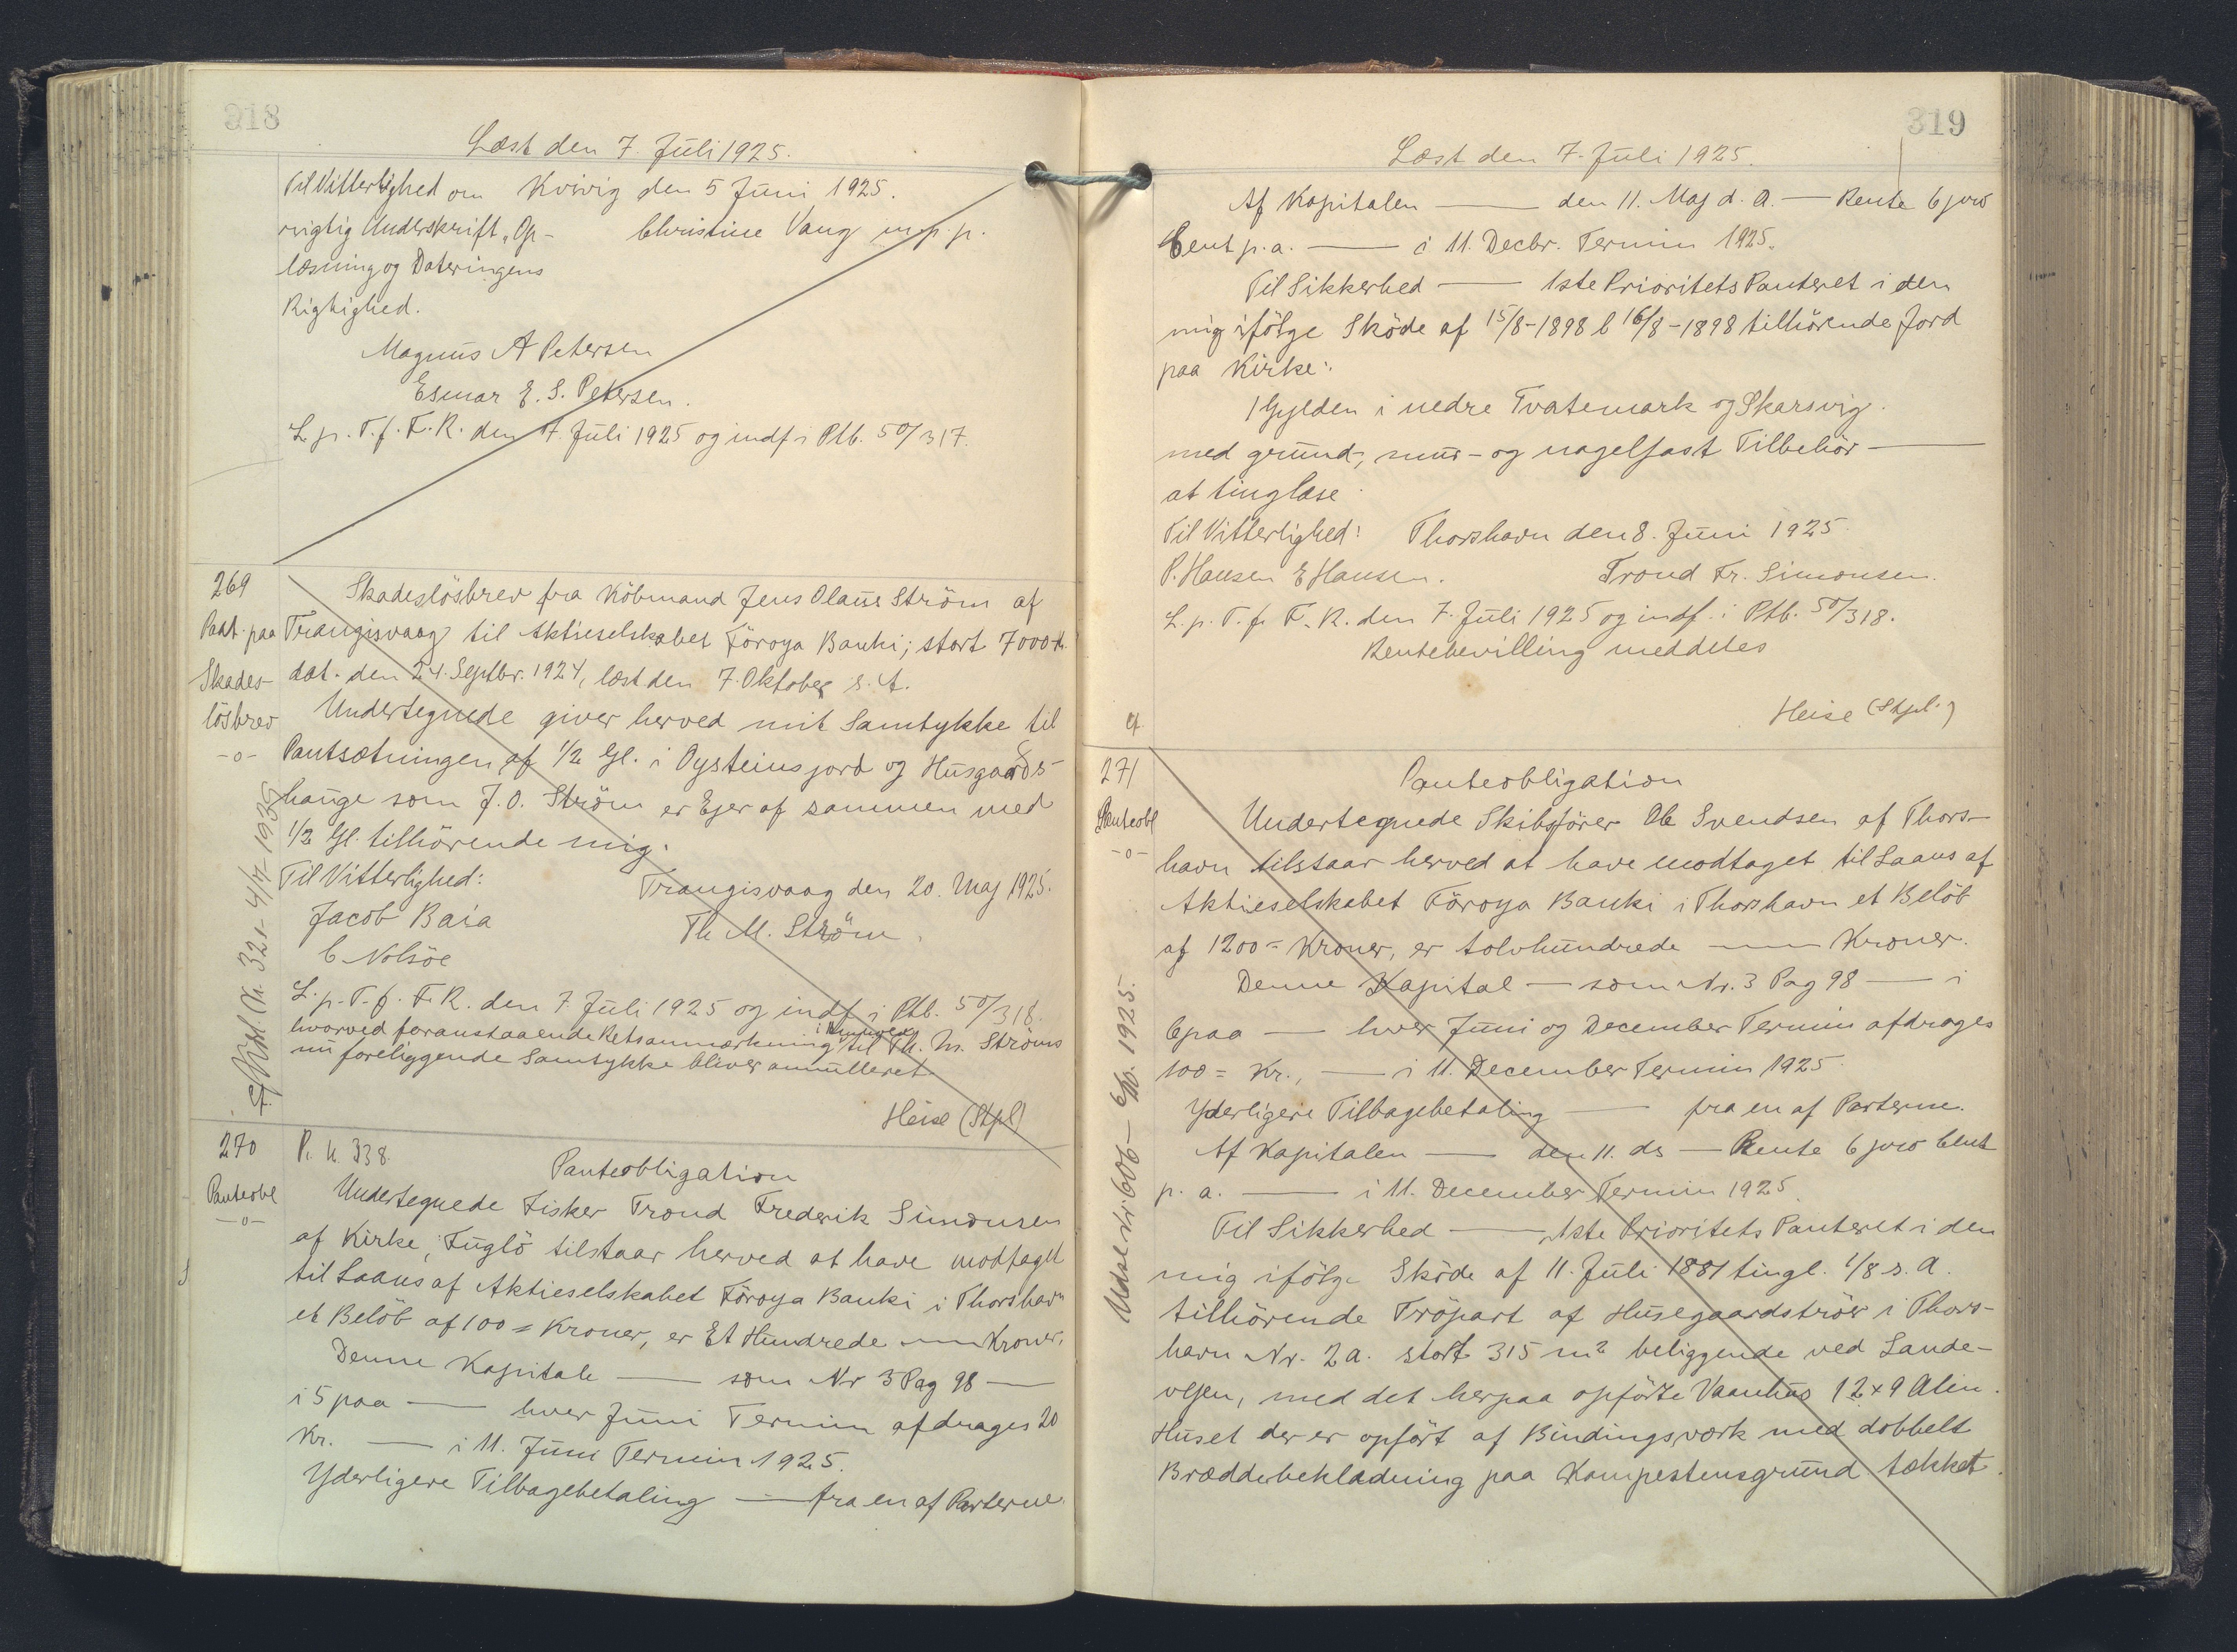 318
Læst den 7. Juli 1925.
Til Vitterlighed om Kvivig den 5 Juni 1925.
rigtig Underskrift, Op- Christine Vang m.p.p.
læsning og Dateringens
Rigtighed.
Magnus A Petersen
Esmar E. S. Petersen.
L. p. T. f. F. R. den 7. Juli 1925 og indf i Ptb. 50/317.
269
Paat. paa
Skades-
lösbrev
-o-
Skadeslösbrev fra Köbmand Jens Olaus Ström af
Trangisvaag til Aktieselskabet Föroya Banki; stort 7000 Kr.
dat. den 24. Septbr. 1924, læst den 7. Oktober s. A.
Undertegnede giver herved mit Samtykke til
Pantsætningen af 1/2 Gl. i Oysteinsjord og Husgaards-
hauge som J. O. Ström er Ejer af sammen med
1/2 Gl. tilhörende mig.
Til Vitterlighed: Trangisvaag den 20. Maj 1925.
Jacob Baia Th. M. Ström.
C. Nolsöe
L. p. T. f. F. R. den 7. Juli 1925 og indf i Ptb. 50/318.
hvorved foranstaaende Retsanmærkning i Henhold til Th. M. Ströms
nu foreliggende Samtykke bliver annulleret
Heise (Stpl)
Nr. 321 - 4/7 1935
270
Panteobl
-o-
P. K. 338.
Panteobligation
Undertegnede Fisker Trond Frederik Simonsen
af Kirke, Fuglö tilstaar herved at have modtaget
til Laans af Aktieselskabet Föroya Banki i Thorshavn
et Belöb af 100 = Kroner, er Et Hundrede — Kroner.
Denne Kapital — som Nr 3 Pag 98 —
i 5 paa — hver Juni Termin afdrages 20
Kr. — i 11. Juni Termin 1925.
Yderligere Tilbagebetaling — fra en af Parterne.
319
Læst den 7. Juli 1925.
Af Kapitalen — den 11. Maj d. A. — Rente 6 pro
Cent p. a. — i 11. Decbr. Termin 1925.
Til Sikkerhed — 1ste Prioritets Panteret i den
mig ifölge Sköde af 15/8-1898 l 16/8-1898 tilhörende Jord
paa Kirke:
1 Gylden i nedre Tvatemark og Skarsvig.
med grund-, mur- og nagelfast Tilbehör —
at tinglæse.
Til Vitterlighed: Thorshavn den 8. Juni 1925.
P. Hansen E Hansen. Trond Fr. Simonsen.
L. p. T. f. F. R. den 7. Juli 1925 og indf. i Ptb. 50/318.
Rentebevilling meddeles
Heise (Stpl.)
271
Panteobl
-o-
Panteobligation
Undertegnede Skibsförer Ole Svendsen af Thors-
havn tilstaar herved at have modtaget til Laans af
Aktieselskabet Föroya Banki i Thorshavn et Belöb
af 1200 = Kroner, er tolvhundrede — Kroner.
Denne Kapital — som Nr. 3 Pag 98 — i
6 paa — hver Juni og December Termin afdrages
100 = Kr., — i 11. December Termin 1925.
Yderligere Tilbagebetaling — fra en af Parterne.
Af Kapitalen — den 11. ds — Rente 6 pro Cent
p. a. — i 11. December Termin 1925.
Til Sikkerhed — 1ste Prioritets Panteret i den
mig ifölge Sköde af 11. Juli 1881 tingl. 1/8 s. A.
tilhörende Tröpart af Husegaardströer i Thors-
havn Nr. 2 a. stort 315 m2 beliggende ved Lande-
vejen, med det herpaa opförte Vaanhus 12 x 9 Alen.
Huset der er opfört af Bindingsværk med dobbelt
Bræddebeklædning paa Kampestensgrund tækket.
Udsl. Nr. 606 - 6/10. 1925.